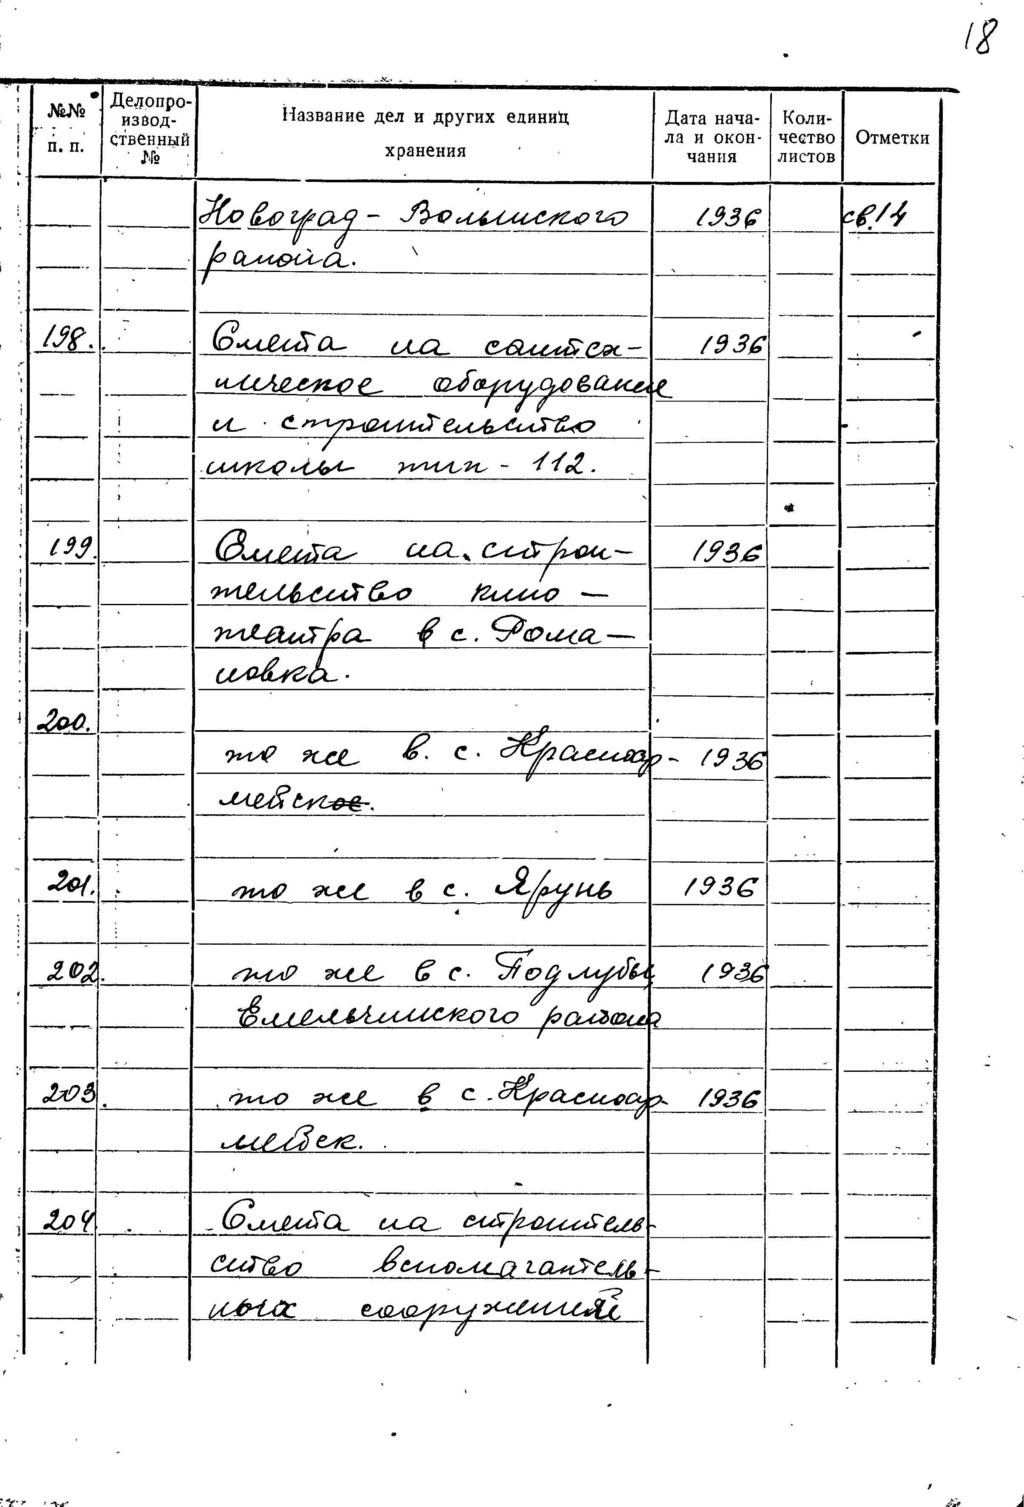 18
№№ п. п. Делопро-извод-ственный № Название дел и других единиц хранения Дата нача-ла и окон-чания Коли-чество листов Отметки
Новоград-Волынского 1936 св.14
района.
198. Смета на сантех- 1936
ническое оборудование
и строительство
школы тип-112.
199. Смета на строи- 1936
тельство кино-
театра в с. Рома-
новка.
200.
то же в. с. Красноар- 1936
мейск.
201. то же в с. Ярунь 1936
202. то же в с. Подлубы 1936
Емельчинского района
203. то же в с. Красноар- 1936
мейск.
204 Смета на строитель-
ство вспомагантель-
ных сооружений